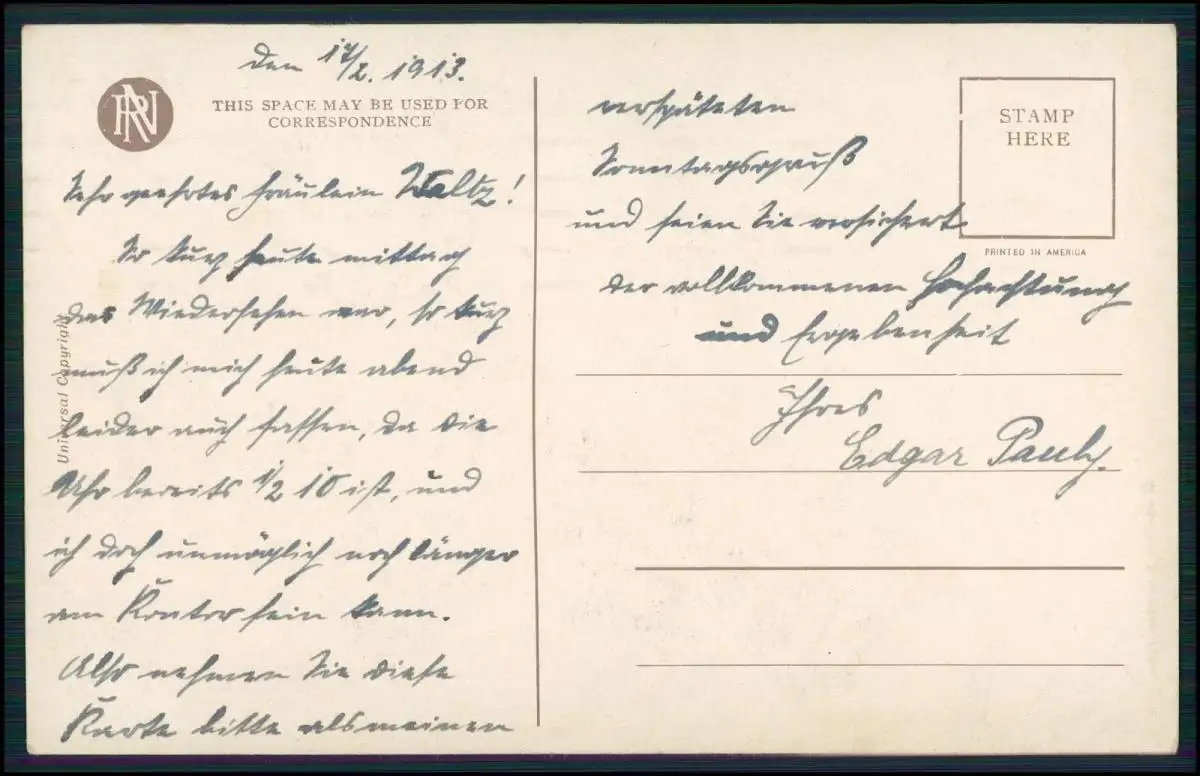 den 17/2. 1913.
RN
THIS SPACE MAY BE USED FOR
CORRESPONDENCE
Sehr geehrtes Fräulein Waltz!
So kurz heute mittag
das Wiedersehen war, so kurz
muß ich mich heute abend
leider auch fassen, da die
Uhr bereits 1/2 10 ist, und
ich doch unmöglich noch länger
am Kontor sein kann.
Also nehmen Sie diese
Karte bitte als meinen
Universal Copyright
verspäteten
Sonntagsgruß
und seien Sie versichert
der vollkommenen Hochachtung
und Ergebenheit
Ihres
Edgar Pauly.
STAMP
HERE
PRINTED IN AMERICA